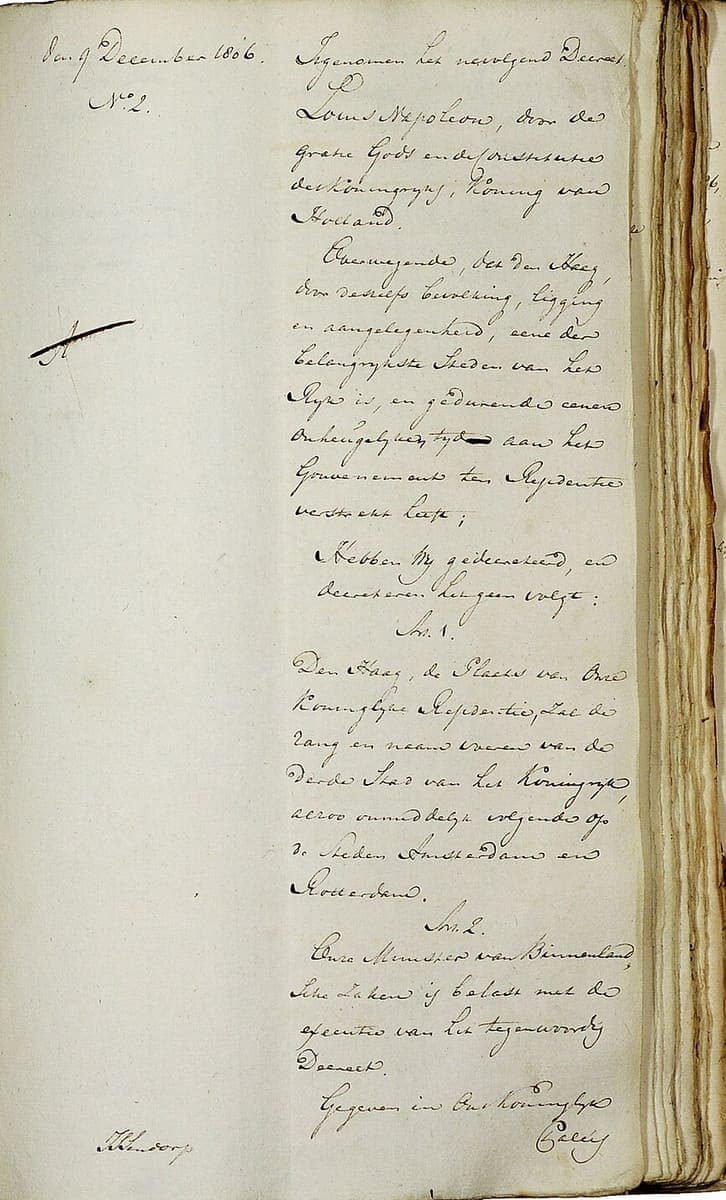 Den 9 December 1806.
No. 2.
Ingenomen het nevolgend Decreet.
Louis Napoleon, door de
gratie Gods en de Constitutie
des Koningryks, Koning van
Holland.
Overwegende, dat den Haag,
door deszelfs bevolking, ligging
en aangelegenheid, eene der
belangrykste Steden van het
Ryk is, en gedurende eenen
onheugelyken tyd aan het
Gouvernement ten Residentie
verstrekt heeft;
Hebben Wy gedecreteerd, en
decreteren hetgeen volgt:
Art. 1.
Den Haag, de Plaats van Onze
Koninglyke Residentie, zal de
rang en naam voeren van de
derde Stad van het Koningryk,
alzoo onmiddelyk volgende op
de Steden Amsterdam en
Rotterdam.
Art. 2.
Onze Minister van Binnenland,
sche Zaken is belast met de
executie van het tegenwoordig
Decreet.
Gegeven in Ons Koninglyk
Paleis